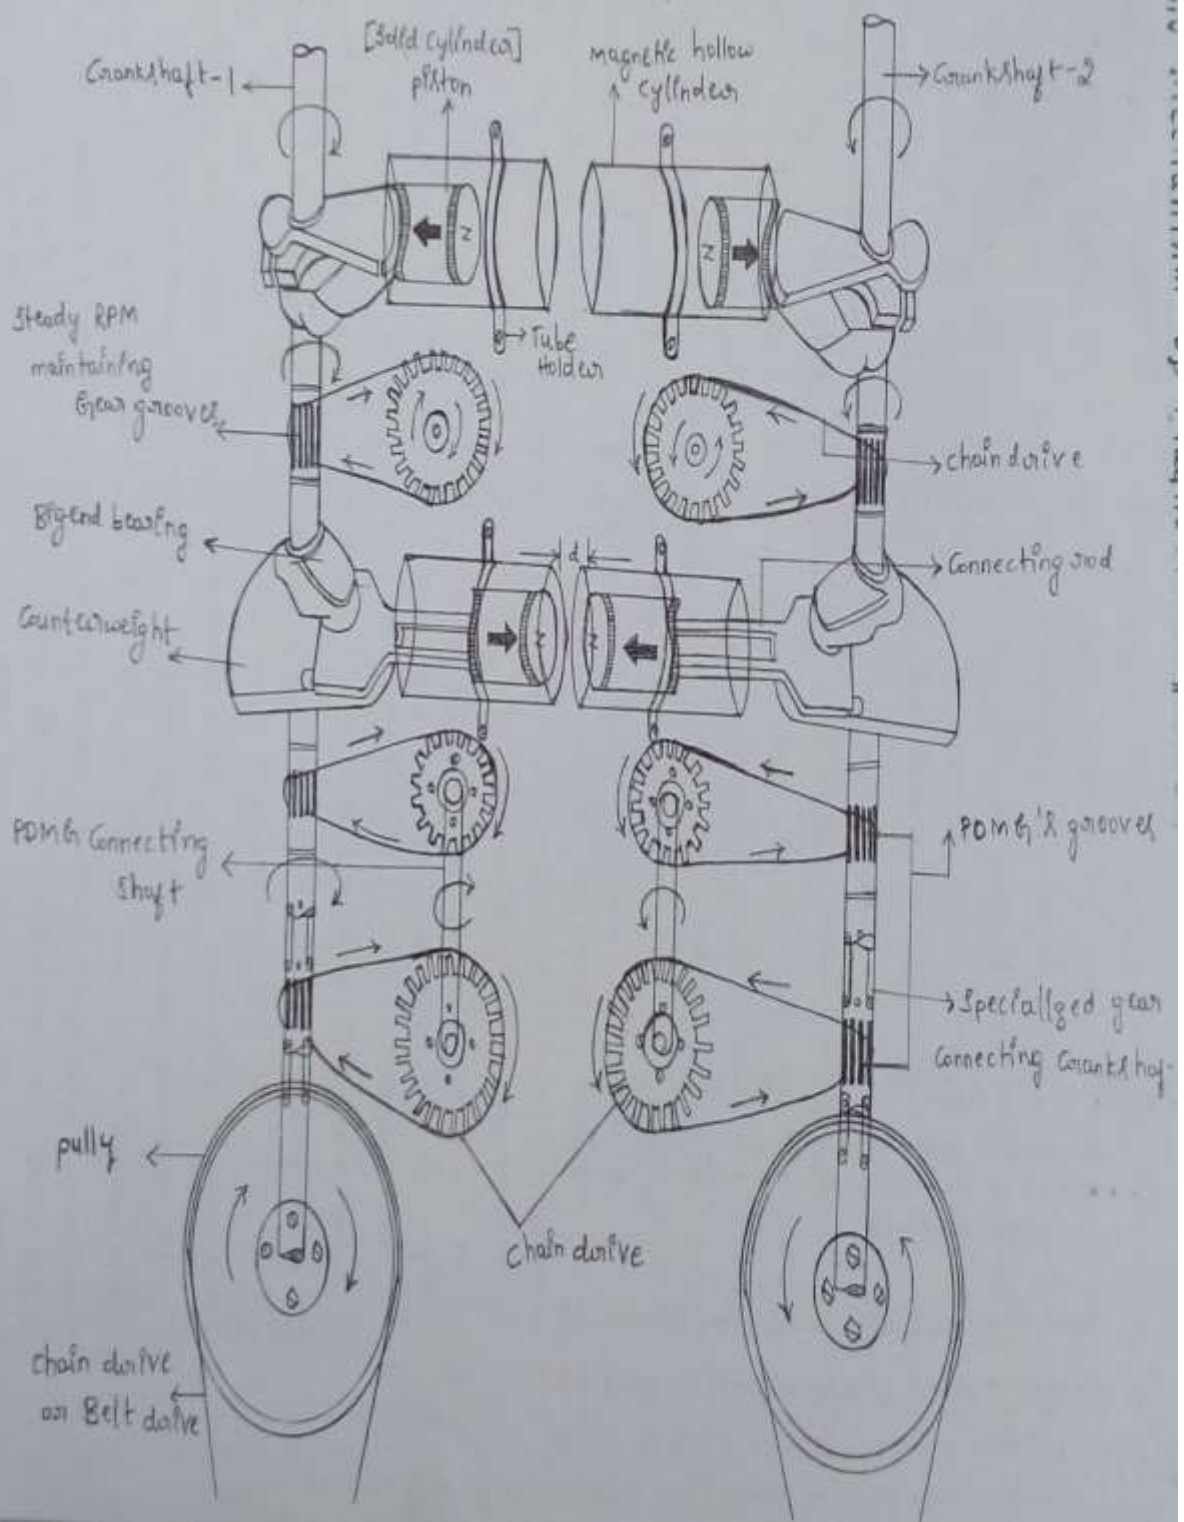 [Solid cylinder]
piston
magnetic hollow
cylinder
Crankshaft-1
Crankshaft-2
N
N
Tube
Holder
Steady RPM
maintaining
Gear grooves
chain drive
Big end bearing
d
Connecting rod
Counterweight
N
N
PDMG Connecting
shaft
PDMG's grooves
Specialized gear
Connecting Crankshaf
pully
chain drive
chain drive
or Belt drive